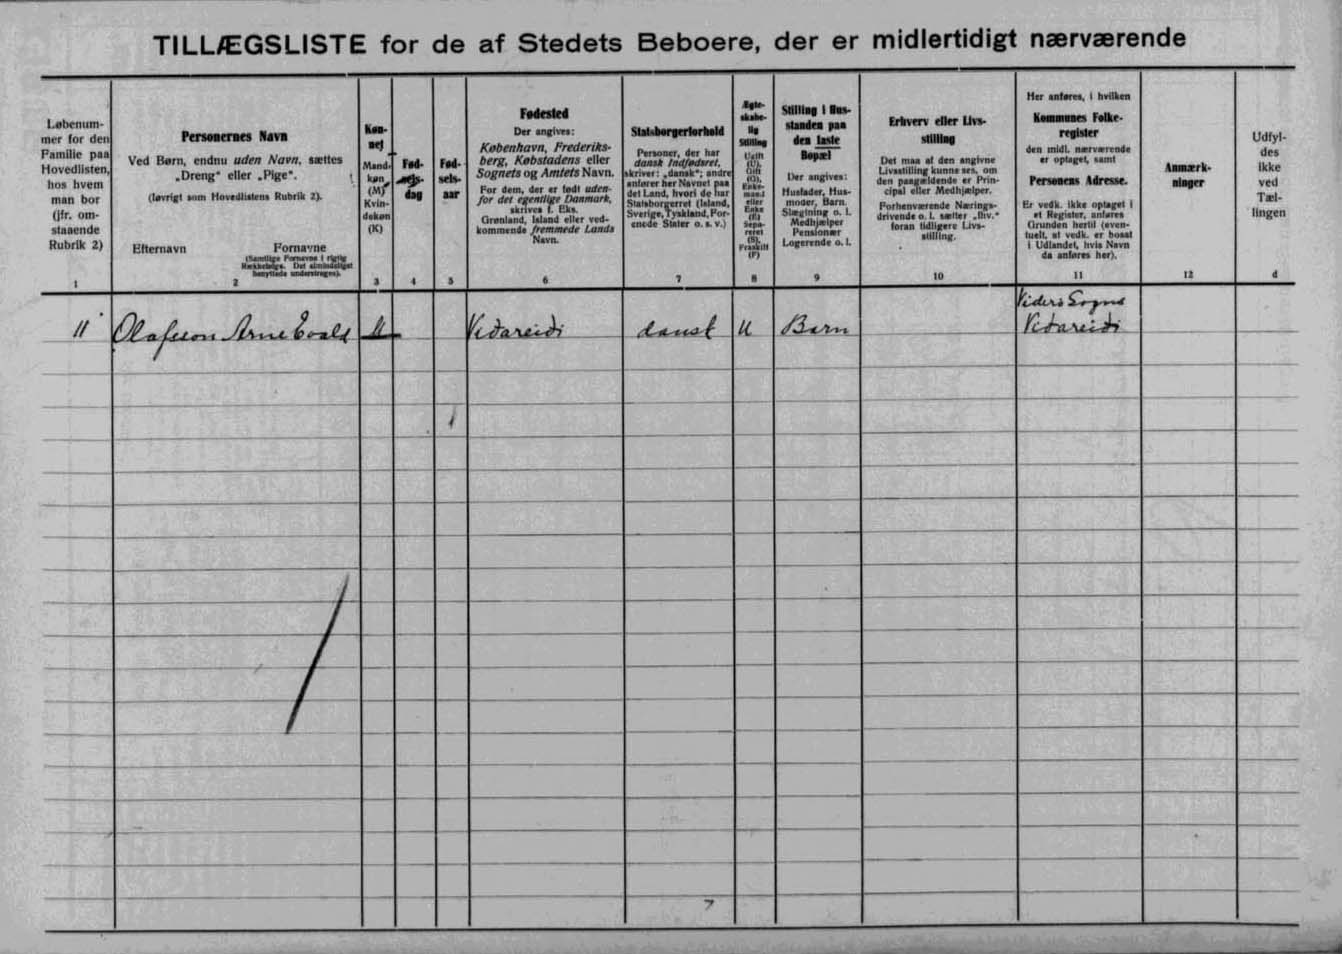 TILLÆGSLISTE for de af Stedets Beboere, der er midlertidigt nærværende
Løbenum-
mer for den
Familie paa
Hovedlisten,
hos hvem
man bor
(jfr. om-
staaende
Rubrik 2)
1
Personernes Navn
Ved Børn, endnu uden Navn, sættes
„Dreng" eller „Pige".
(Iøvrigt som Hovedlistens Rubrik 2).
Efternavn
Fornavne
(Samtlige Fornavne i rigtig
Rækkefølge. Det almindeligst
benyttede understreges).
2
Køn-
net
Mand-
køn
(M)
Kvin-
dekøn
(K)
3
Fød-
sels-
dag
4
Fød-
sels-
aar
5
Fødested
Der angives:
København, Frederiks-
berg, Købstadens eller
Sognets og Amtets Navn.
For dem, der er født uden-
for det egentlige Danmark,
skrives f. Eks.
Grønland, Island eller ved-
kommende fremmede Lands
Navn.
6
Statsborgerforhold
Personer, der har
dansk Indfødsret,
skriver: „dansk"; andre
anfører her Navnet paa
det Land, hvori de har
Statsborgerret (Island,
Sverige, Tyskland, For-
enede Stater o. s. v.)
7
Ægte-
skabe-
lig
Stilling
Ugift
(U),
Gift
(G),
Enke-
mand
eller
Enke
(E)
Sepa-
reret
(S),
Fraskilt
(F)
8
Stilling i Hus-
standen paa
den faste
Bopæl
Der angives:
Husfader, Hus-
moder, Barn.
Slægtning o. l.
Medhjælper
Pensionær
Logerende o. l.
9
Erhverv eller Livs-
stilling
Det maa af den angivne
Livsstilling kunne ses, om
den pangældende er Prin-
cipal eller Medhjælper.
Forhenværende Nærings-
drivende o. l. sætter „fhv."
foran tidligere Livs-
stilling.
10
Her anføres, i hvilken
Kommunes Folke-
register
den midl. nærværende
er optaget, samt
Personens Adresse.
Er vedk. ikke optaget i
et Register, anføres
Grunden hertil (even-
tuelt, at vedk. er bosat
i Udlandet, hvis Navn
da anføres her).
11
Anmærk-
ninger
12
Udfyl-
des
ikke
ved
Tæl-
lingen
d
Viderø Sogns
11 Olafsson Arne Evald M Viðareiði dansk U Barn Viðareiði